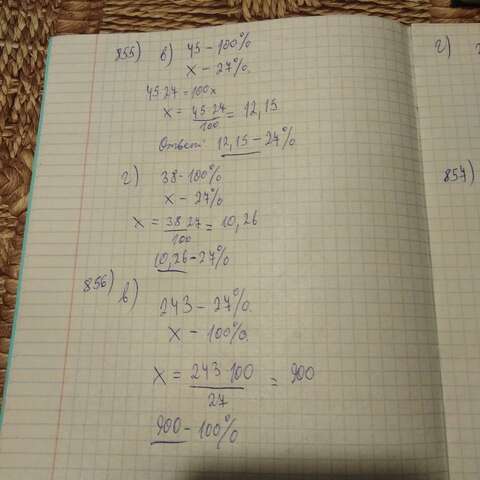 855) в) 45 - 100%
x - 27%
45·27 = 100x
x = 45·27/100 = 12,15
Ответ: 12,15 - 27%
г) 38 - 100%
x - 27%
x = 38·27/100 = 10,26
10,26 - 27%
856) в)
243 - 27%
x - 100%
x = 243·100/27 = 900
900 - 100%
г)
857)